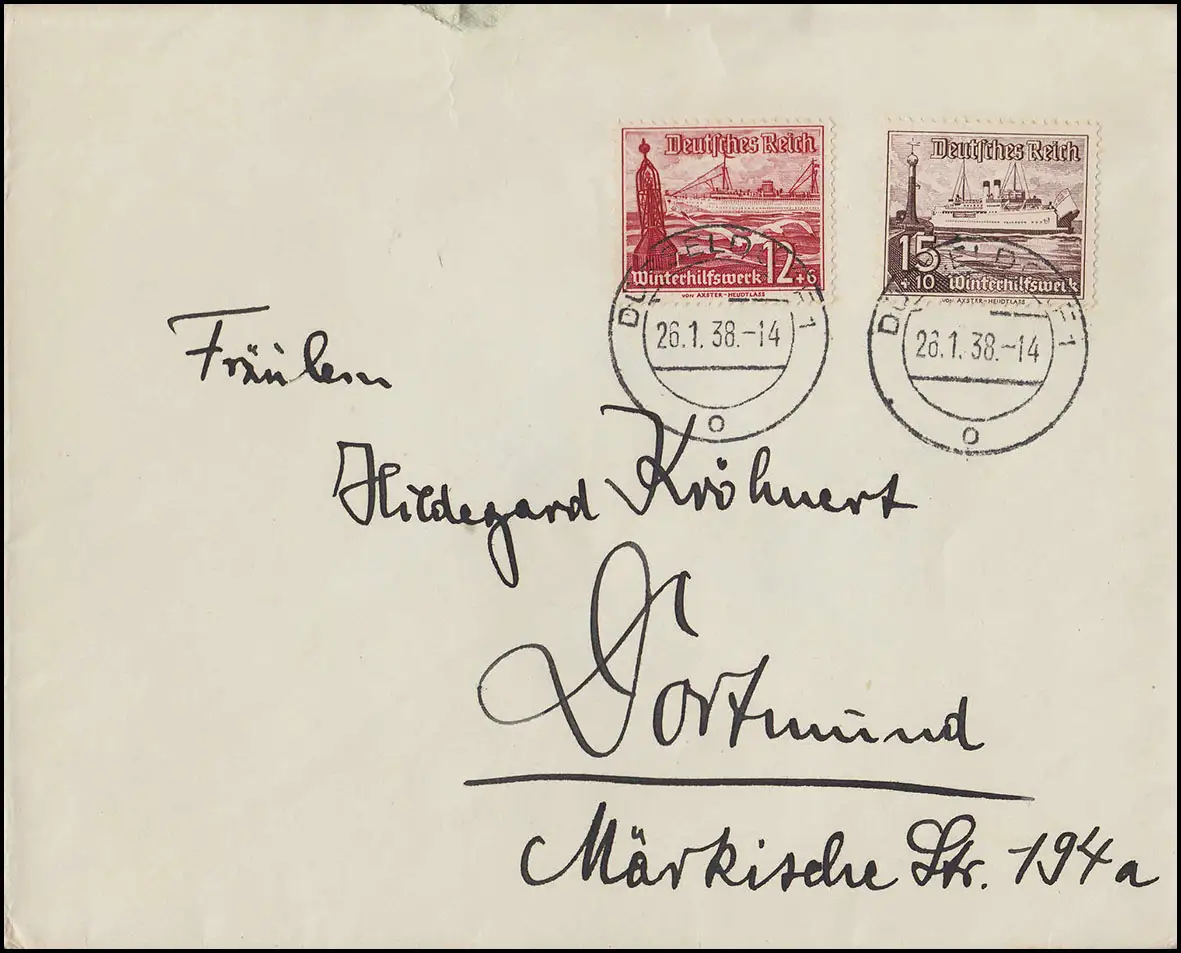 Deutsches Reich
Winterhilfswerk 12+6
VON AXSTER-HEUDTLASS
Deutsches Reich
15+10 Winterhilfswerk
VON AXSTER-HEUDTLASS
26.1.38.-14
o
26.1.38.-14
o
Fräulein
Hildegard Kröhnert
Dortmund
Märkische Str. 194a